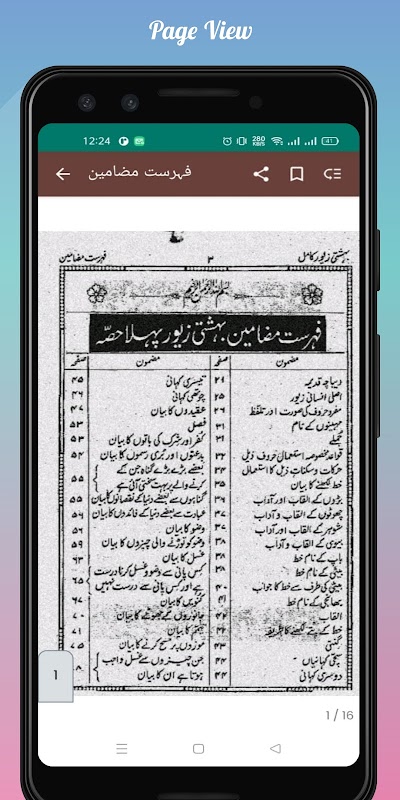 Page View
12:24
280
KB/S
41
فہرست مضامین
بہشتی زیور کامل
۳
فہرست مضامین
بسم اللہ الرحمن الرحیم
فہرست مضامین بہشتی زیور پہلا حصّہ
مضمون
صفحہ
مضمون
صفحہ
دیباچہ قدیمہ
۲۱
اصلی انسانی زیور
۲۵
مفرد حروف کی صورت اور تلفظ
۲۶
مہینوں کے نام
۳۱
جملے
قواعد مخصوصہ استعمالی حروف ذیل
۳۲
حرکات و سکنات ذیل کا استعمال
۳۴
خط لکھنے کا بیان
۳۵
بڑوں کے القاب اور آداب
چھوٹوں کے القاب و آداب
شوہر کے القاب اور آداب
۳۷
بیوی کے القاب و آداب
۳۸
باپ کے نام خط
۳۸
بیٹی کے نام خط
بیٹی کی طرف سے خط کا جواب
۴۰
بھانجی کے نام خط
القاب
خط کے پتے لکھنے کا طریقہ
گنتی
سچی کہانیاں
۴۴
دوسری کہانی
۴۴
تیسری کہانی
۴۵
چوتھی کہانی
۴۶
عقیدوں کا بیان
۴۷
فصل
۵۳
کفر اور شرک کی باتوں کا بیان
۵۳
بدعتوں اور بری رسموں کا بیان
۵۴
بعضے بڑے بڑے گناہ جن کے
کرنے والے پر بہت سختی آئی ہے
۵۵
گناہوں سے بعضے دنیا کے نقصانوں کا بیان
۵۵
عبادت سے بعضے دنیا کے فائدوں کا بیان
وضو کا بیان
وضو کو توڑنے والی چیزوں کا بیان
۵۹
غسل کا بیان
۶۳
کس پانی سے وضو و غسل کرنا درست
ہے اور کس پانی سے درست نہیں
۶۵
کنویں کا بیان
جانوروں کے جھوٹے کا بیان
۷۰
تیمم کا بیان
۷۱
موزوں پر مسح کرنے کا بیان
۷۵
جن چیزوں سے غسل واجب
ہوتا ہے ان کا بیان
۷۸
1
1 / 16